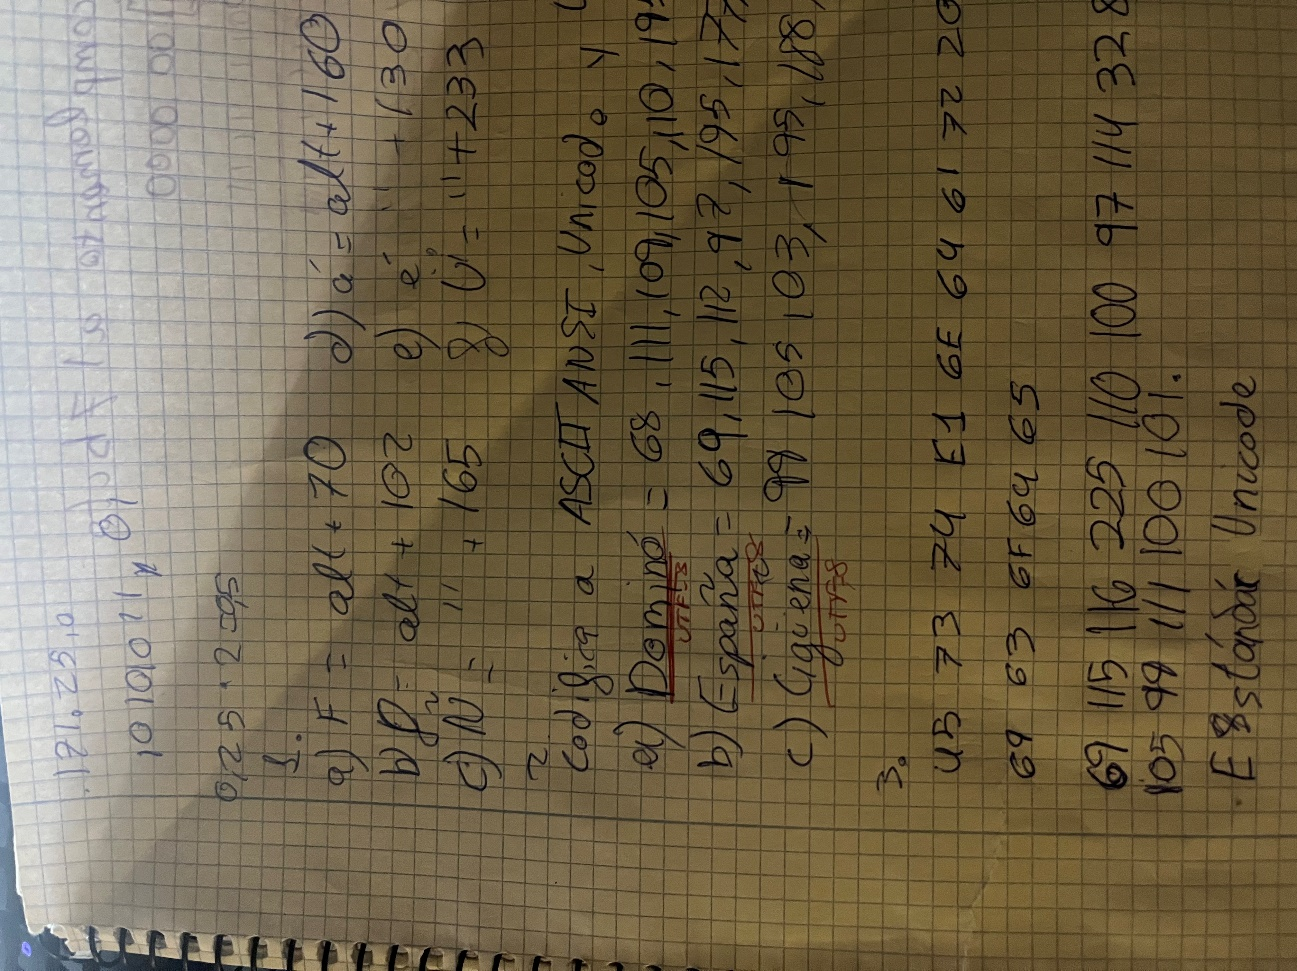 171.25.0
1010101 x 01
0,125 · 2 = 0,5
1.
a) F = alt + 70 d) á = alt + 160
b) = alt + 102 e) é " + 130
c) Ñ = " + 165 g) = " + 233
2
Codifica a ASCII ANSI, Unicode y
a) Dominó = 68, 111, 109, 105, 110, 195
UTF-8
b) España = 69, 115, 112, 97, 195, 177,
UTF-8
c) Cigüena = 99 105 103, 195, 188,
UTF-8
3.
45 73 74 E1 6E 64 61 72 20
69 63 6F 64 65
69 115 116 225 110 100 97 114 32 8
105 99 111 100 101.
Estándar Unicode